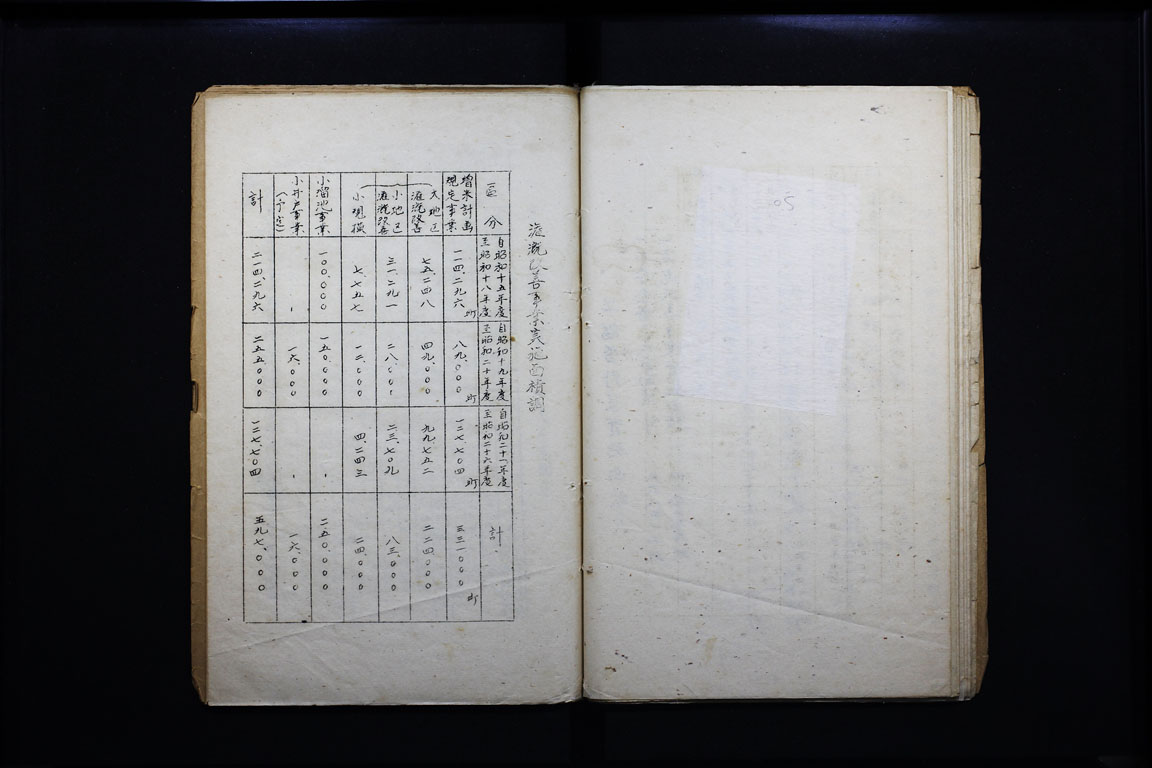 灌漑改善事業実施面積調
區分
自昭和十五年度
至昭和十八年度
自昭和十九年度
至昭和二十年度
自昭和二十一年度
至昭和二十六年度
計
増米計画
既定事業
一一四、二九六町
八九、〇〇〇町
一二七、七〇四町
三三一、〇〇〇町
大地区
灌漑改善
七五、二四八
四九、〇〇〇
九九、七五二
二二四、〇〇〇
小地区
灌漑改善
三一、二九一
二八、〇〇〇
二三、七〇九
八三、〇〇〇
小規模
七、七五七
一二、〇〇〇
四、二四三
二四、〇〇〇
小溜池事業
一〇〇、〇〇〇
一五〇、〇〇〇
二五〇、〇〇〇
小井戸事業
(予定)
一六、〇〇〇
一六、〇〇〇
計
二一四、二九六
二五五、〇〇〇
一二七、七〇四
五九七、〇〇〇